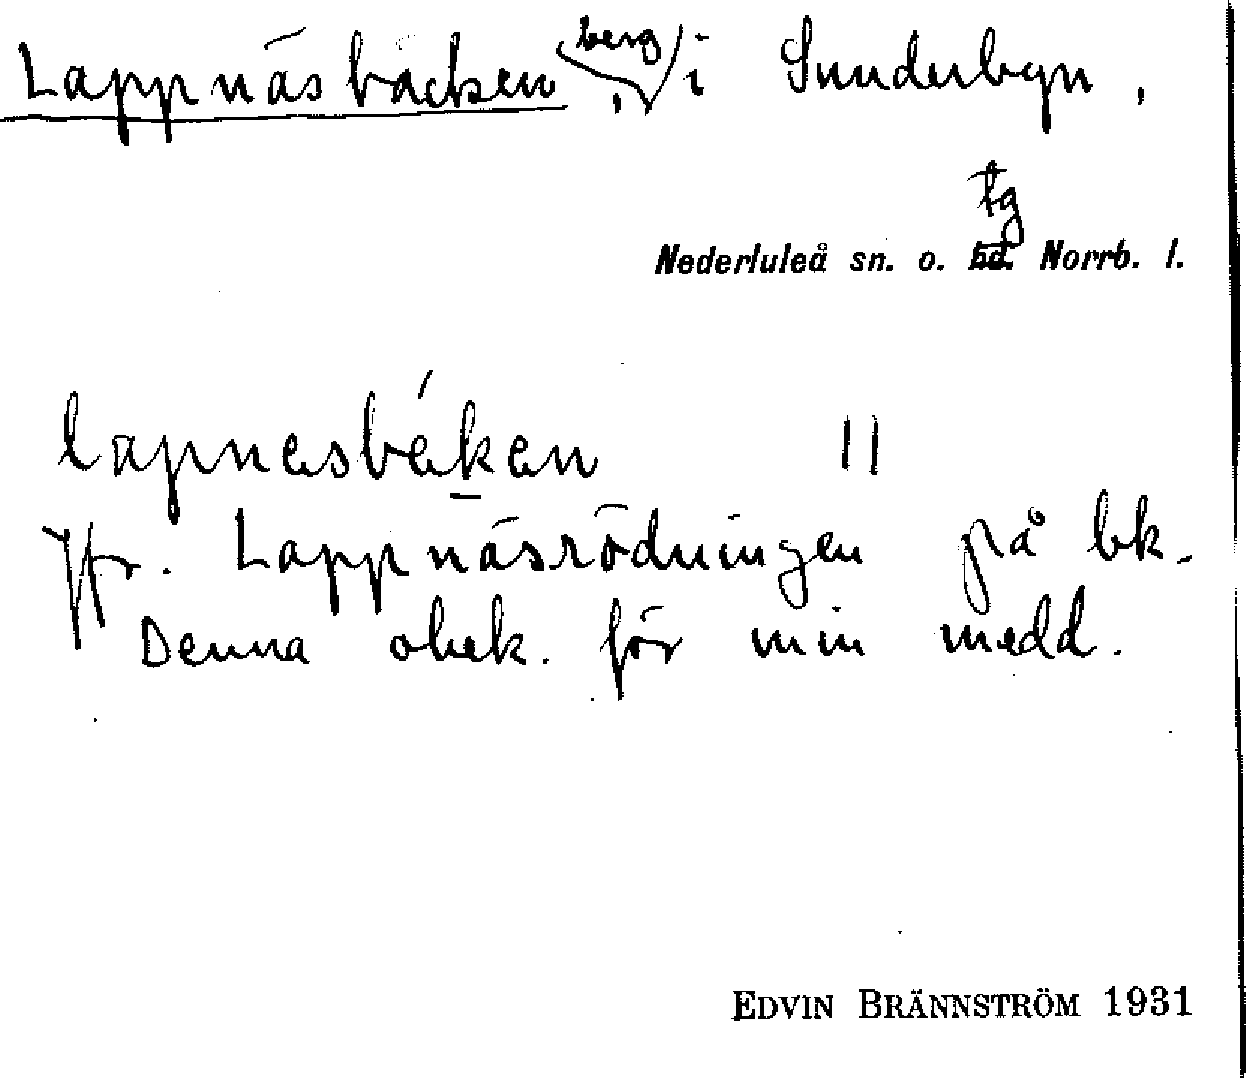 Lappnäsbäcken, berg i Sunderbyn,
tg
Nederluleå sn. o. bd. Norrb. l.
lapnesbéken ||
Jfr. Lappnäsrödningen på bk.
Denna obek. för min medd.
EDVIN BRÄNNSTRÖM 1931